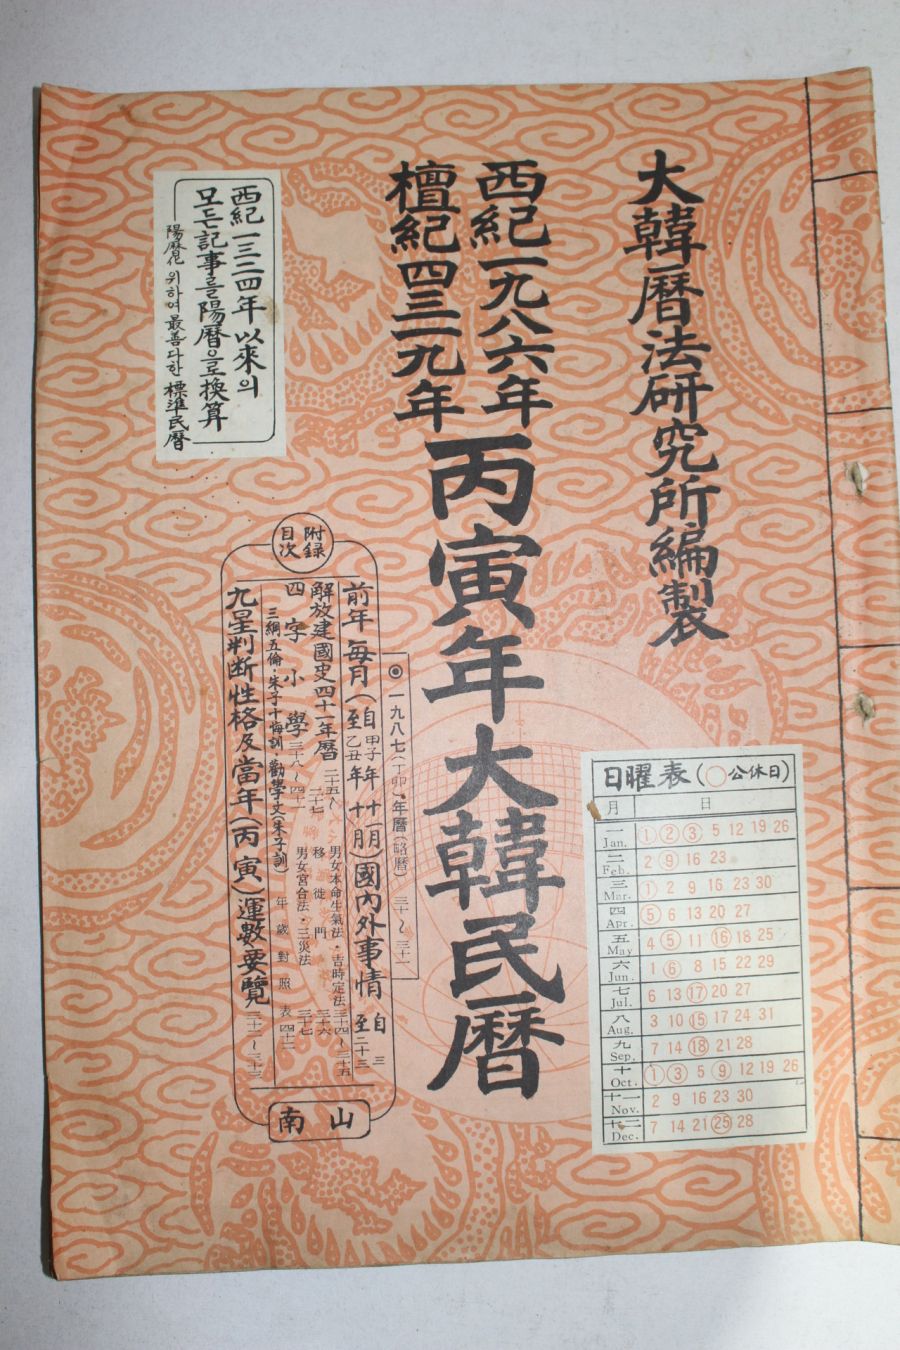 大韓曆法研究所編製
西紀一九八六年
檀紀四三一九年
丙寅年大韓民曆
西紀一三二四年以來의
모든記事를陽曆으로換算
陽曆化 위하여最善다한 標準民曆
附録
目次
◎一九八七(丁卯)年曆(略曆) 三十～三十一
前年 每月(自甲子年 至乙丑年)國內外事情 自三 至二十三
解放建國史四十一年曆 二十五～二十七
男女本命生氣法・吉時定法 三十四～三十五
四字小學 三十八～四十一
移徙門 三十六
男女宮合法・三災法 三十七
三綱五倫・朱子十悔訓・勸學文(朱子訓) 年歲對照表 四十二
九星判断性格及當年(丙寅)運數要覽 三十二～三十三
南山
日曜表(○公休日)
月 日
一 Jan. 1 2 3 5 12 19 26
二 Feb. 2 9 16 23
三 Mar. 1 2 9 16 23 30
四 Apr. 5 6 13 20 27
五 May 4 5 11 16 18 25
六 Jun. 1 6 8 15 22 29
七 Jul. 6 13 17 20 27
八 Aug. 3 10 15 17 24 31
九 Sep. 7 14 18 21 28
十 Oct. 1 3 5 9 12 19 26
十一 Nov. 2 9 16 23 30
十二 Dec. 7 14 21 25 28